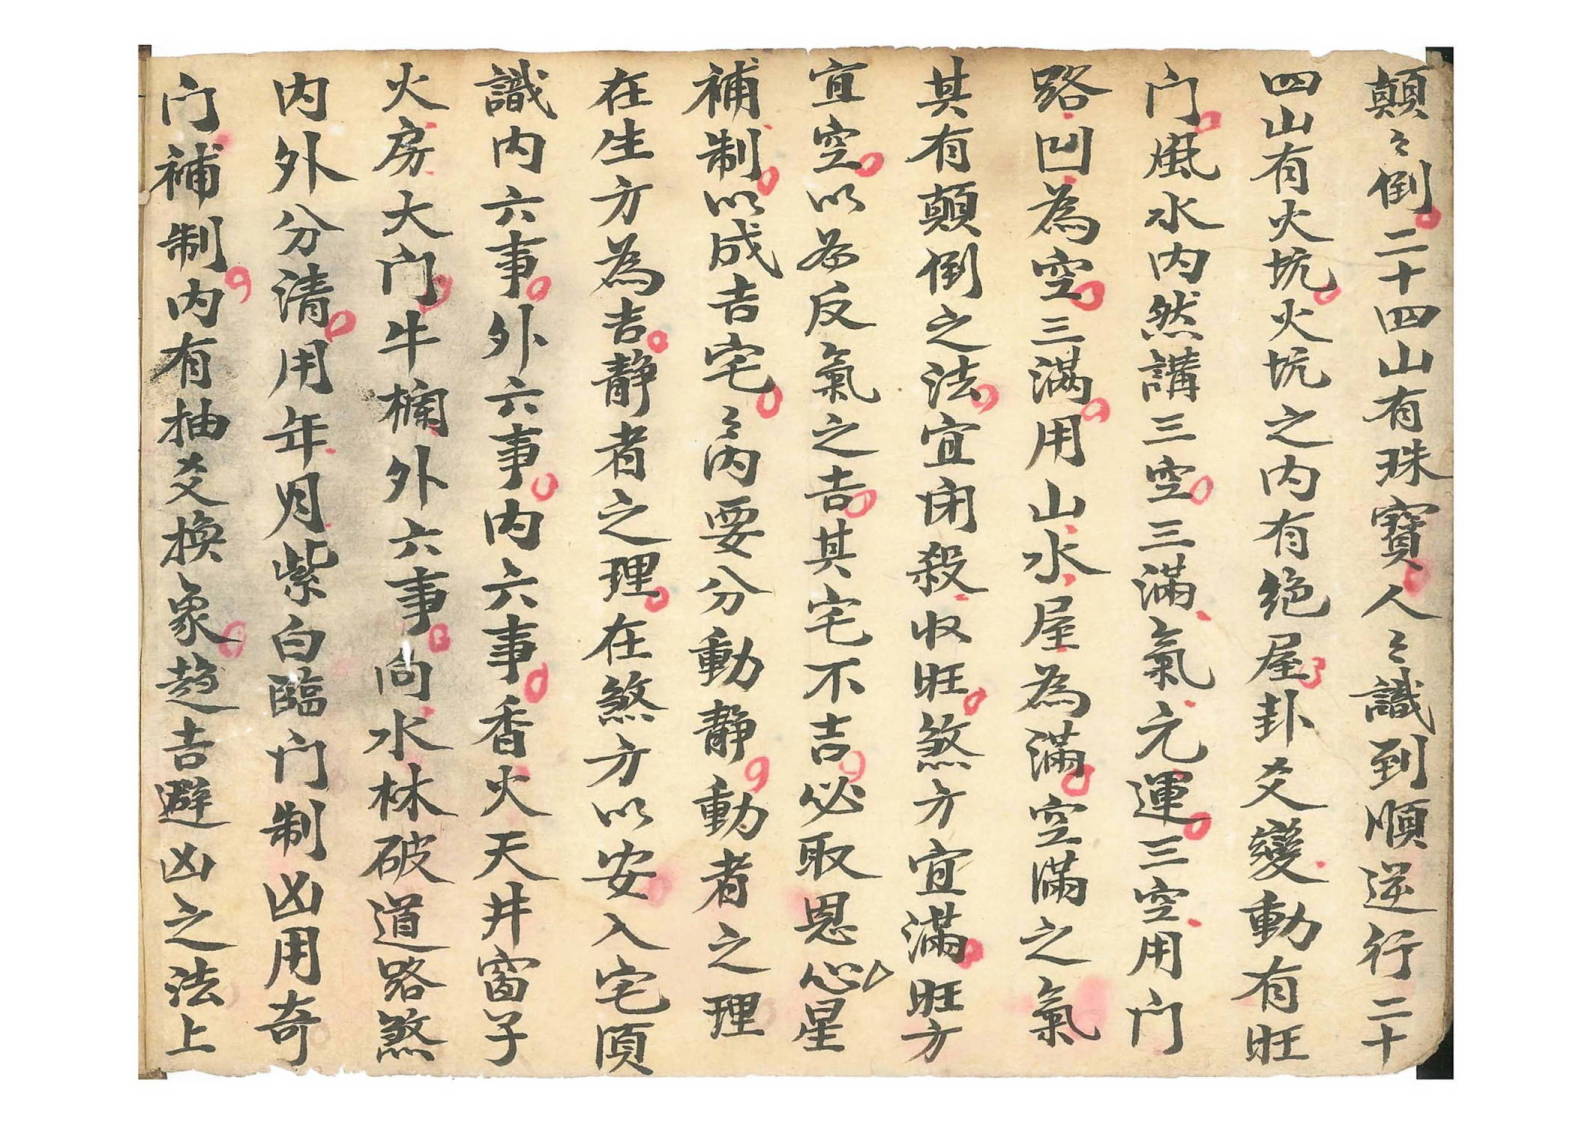 顛〻倒二十四山有珠寶人〻識到順逆行二十
四山有火坑火坑之内有絶屋卦爻變動有旺
门風水内然講三空三滿氣元運三空用门
路凹為空三滿用山水屋為滿空滿之氣
其有顛倒之法宜闭殺收旺煞方宜滿旺方
宜空以為反氣之吉其宅不吉必取恩星
補制以成吉宅〻内要分動静動者之理
在生方為吉静者之理在煞方以安入宅須
識内六事外六事内六事香火天井窗子
火房大门牛欄外六事向水林破道路煞
内外分清用年月紫白臨门制凶用奇
门補制内有抽爻换象趋吉避凶之法上